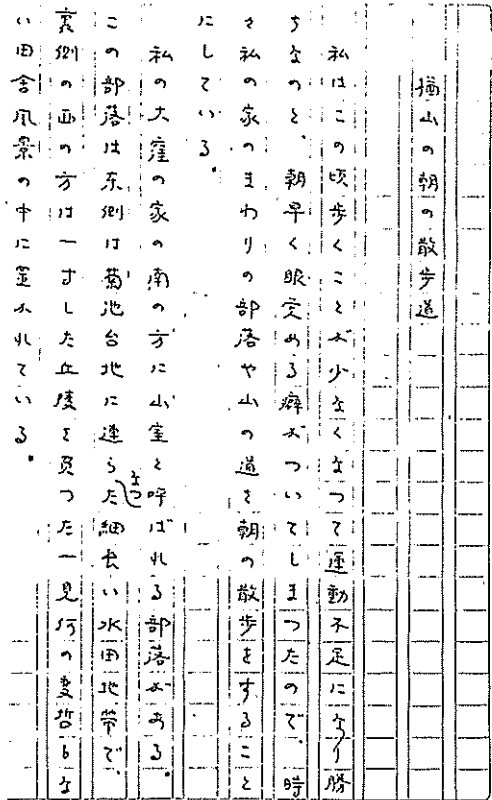 楢山の朝の散歩道
私はこの頃歩くことが少なくなつて運動不足になり勝
ちなのと、朝早く眼覚める癖がついてしまつたので、時
々私の家のまわりの部落や山の道を朝の散歩をすること
にしている。
私の大窪の家の南の方に山室と呼ばれる部落がある。
この部落は东側は菊池台地に連らなつた細長い水田地帯で、
裏側の西の方は一寸した丘陵を負つた一見何の変哲もな
い田舎風景の中に置かれている。